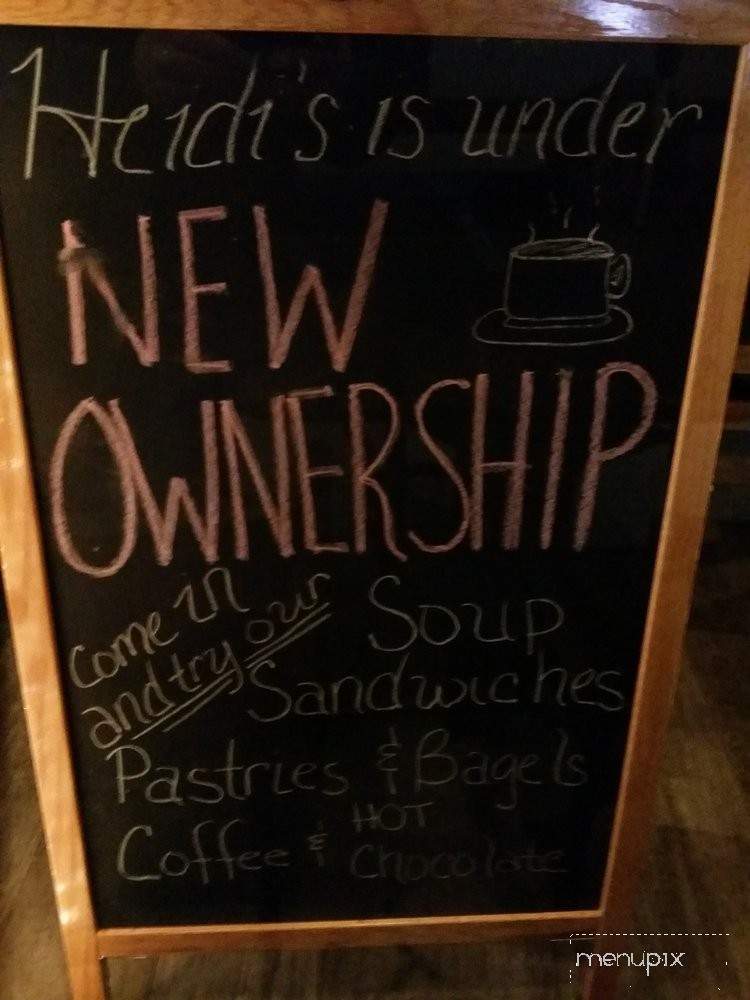 Heidi's is under
NEW
OWNERSHIP
come in
and try our
Soup
Sandwiches
Pastries & Bagels
Coffee & HOT
Chocolate
menupix